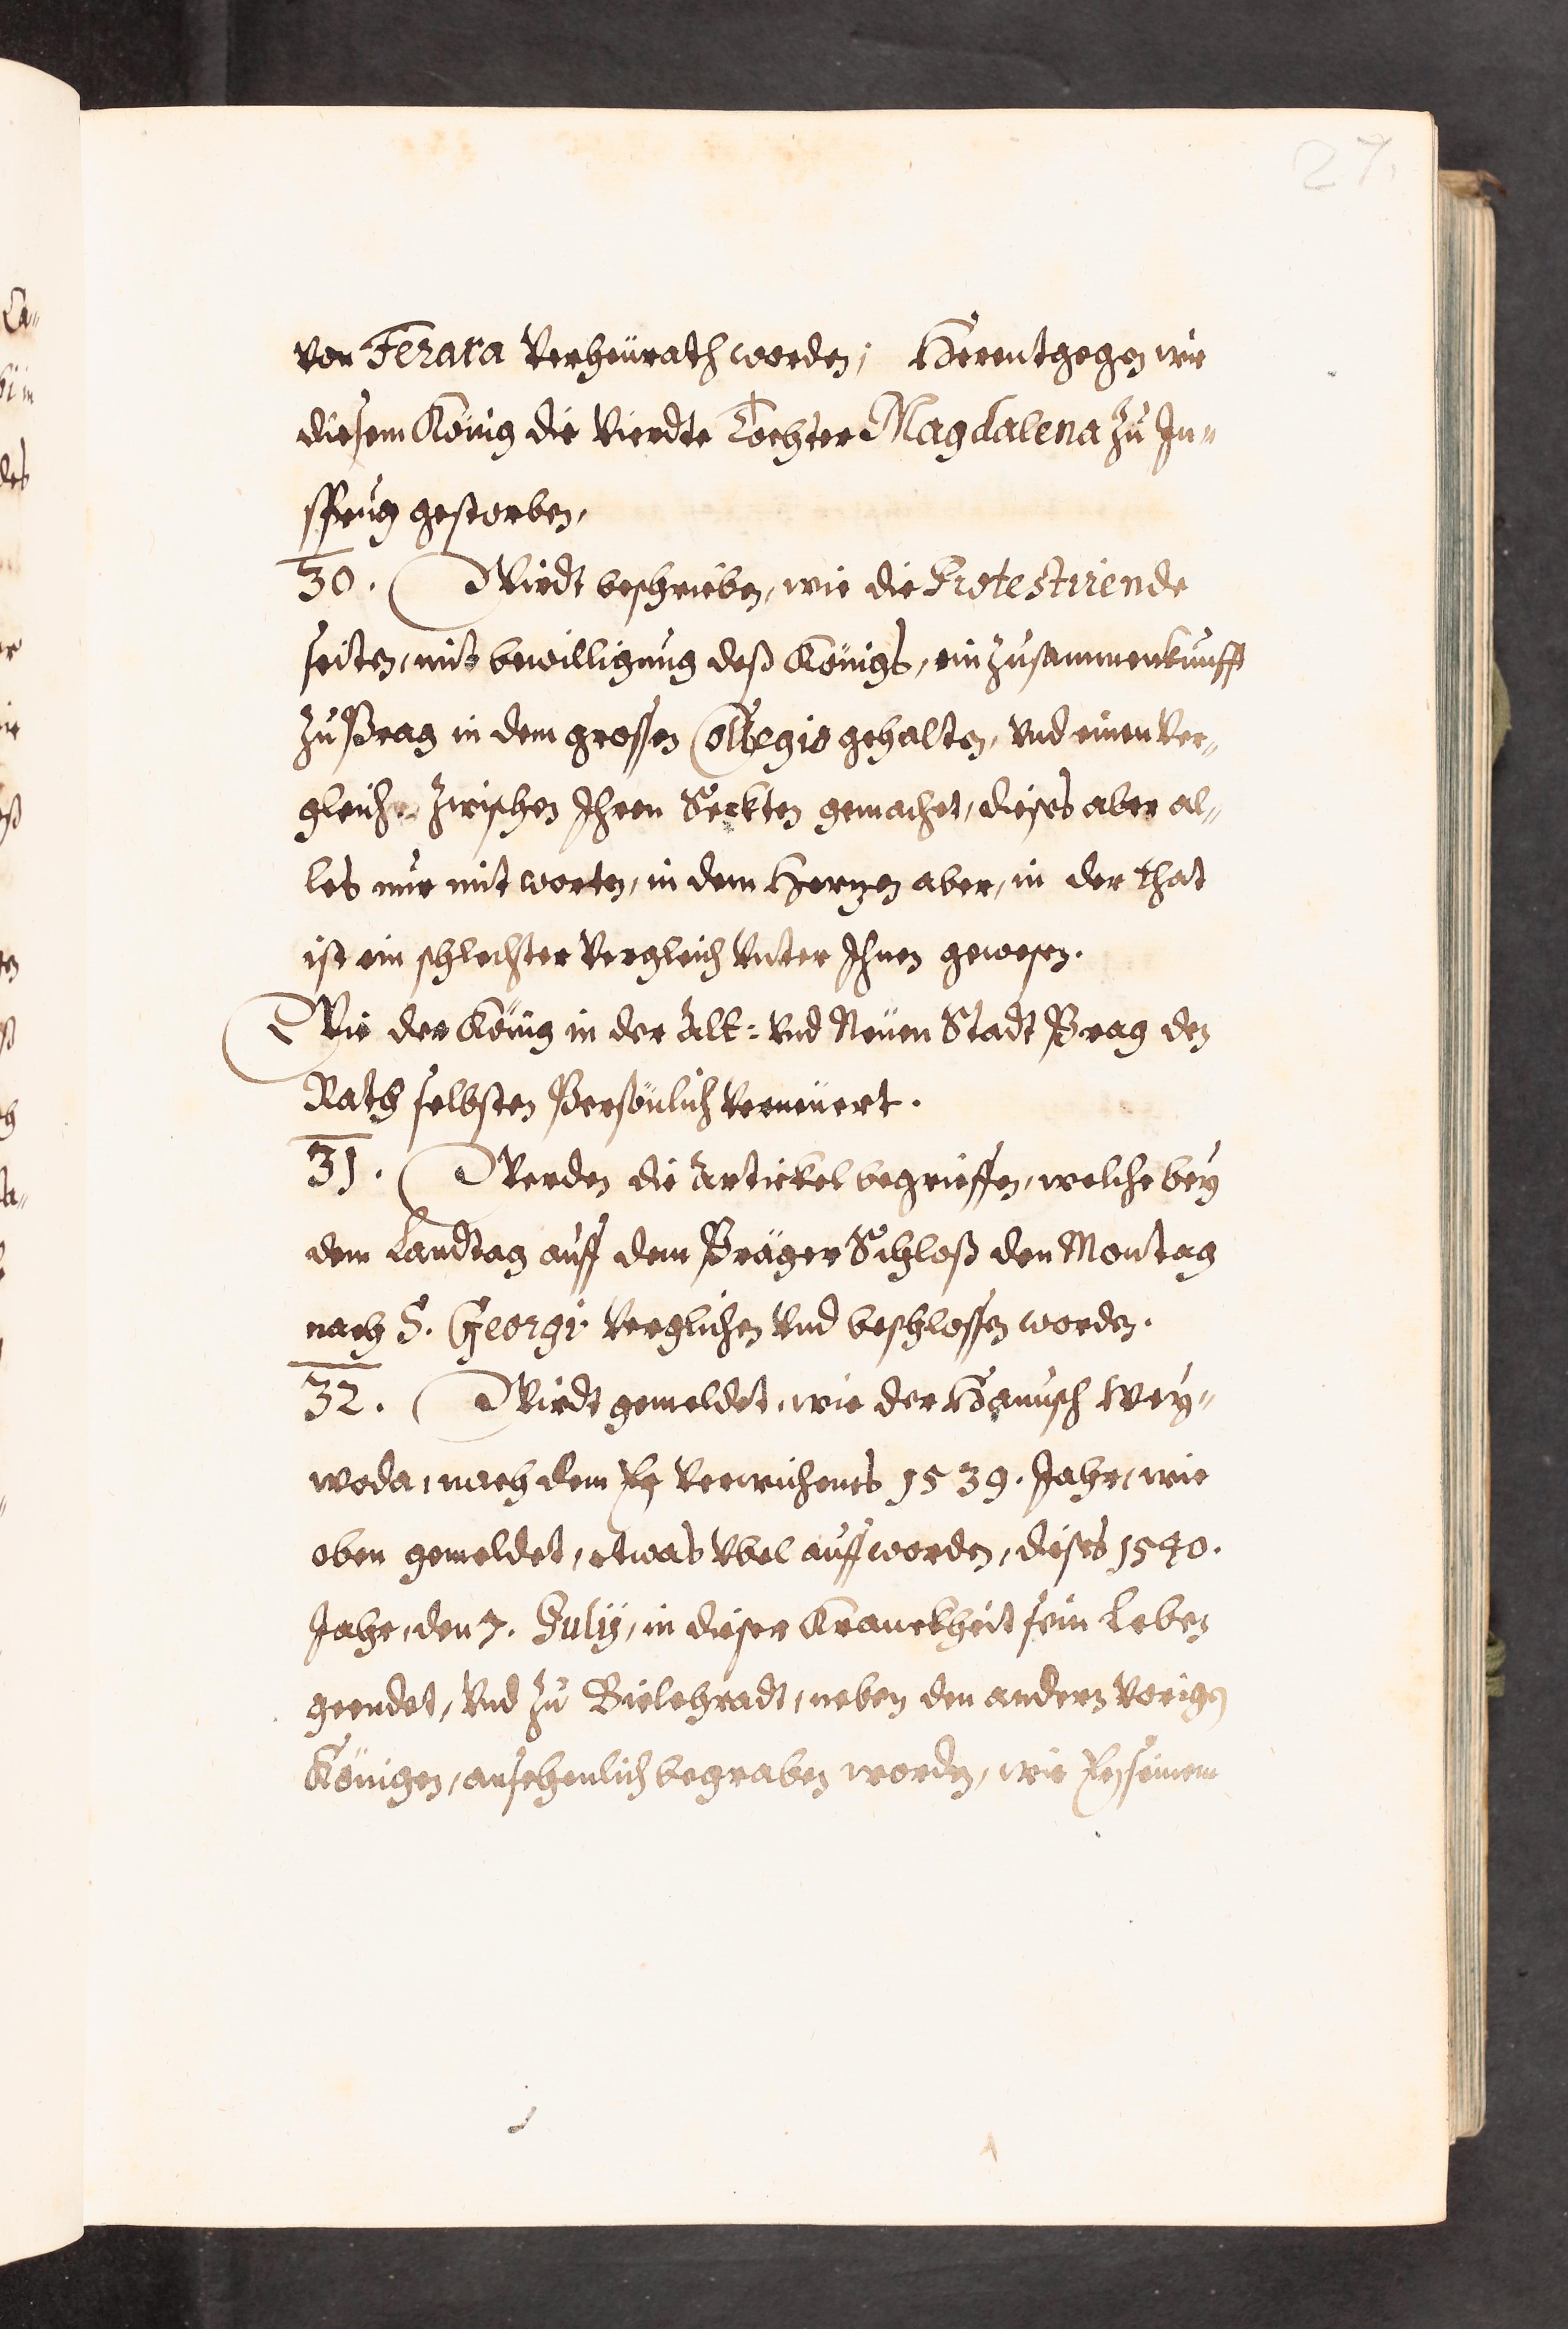 27.
von Ferara Verheürath worden; Herentgegen wie
diesem König die Vierdte Tochter Magdalena zu In-
sprug gestorben,
30. Wirdt beschrieben, wie die Protestirende
seiten, mit bewilligung deß Königs, ein Zusammenkunfft
zu Prag in dem grossen Collegio gehalten, Vnd einen Ver-
gleich zwischen Ihren Seckten gemachet, dieses aber al-
les nur mit worten, in dem Hertzen aber, in der that
ist ein schlechter Vergleich Vnter Ihnen gewesen.
Wie der König in der Alt- Vnd Neüen Stadt Prag den
Rath selbsten Persönlich Verneüert.
31. Werden die Artickel begrieffen, welche beÿ
dem Landtag auff dem Präger Schloß den Montag
nach S. Georgi Verglichen Vnd beschlossen worden.
32. Wirdt gemeldet, wie der Hanusch Weÿ-
woda, nach dem Verwichenes 1539. Jahr, wie
oben gemeldet, etwas Vbel auff worden, dieses 1540.
Jahr, den 7. Julÿ, in dieser Kranckheit sein Leben
geendet, Vnd zu Bielehradt, neben den andern Vorigen
Königen, ansehenlich begraben worden, wie seinem